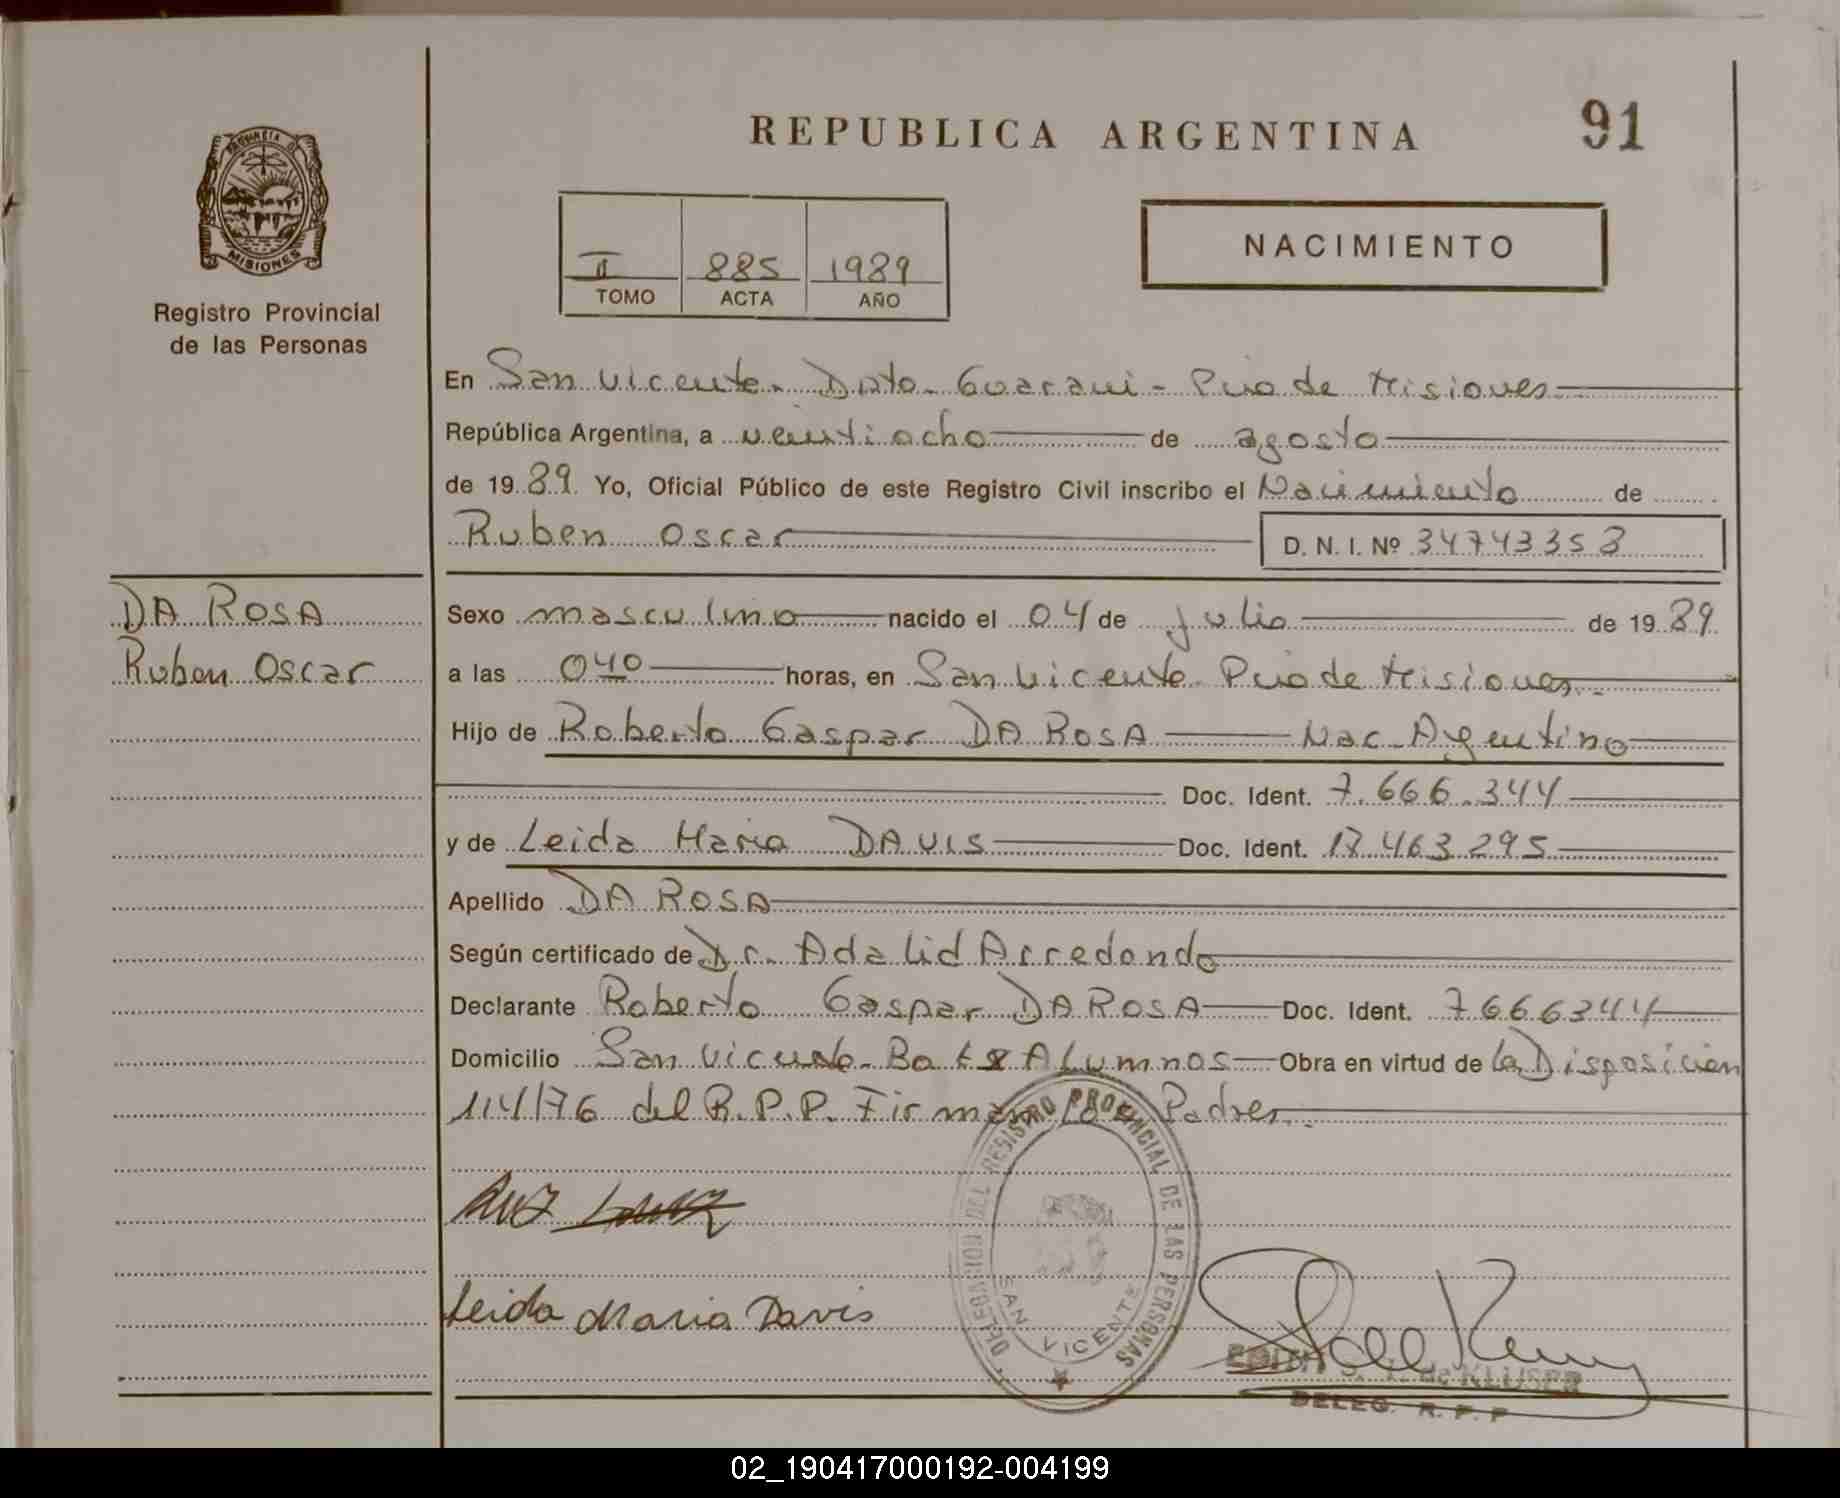 REPUBLICA ARGENTINA
91
PROVINCIA D
MISIONES
Registro Provincial
de las Personas
II 885 1989
TOMO ACTA AÑO
NACIMIENTO
En San Vicente - Dpto - Guarani - Pcia de Misiones
República Argentina, a veintiocho de agosto
de 1989 Yo, Oficial Público de este Registro Civil inscribo el Nacimiento de
Ruben Oscar D. N. I. Nº 34743353
DA ROSA
Ruben Oscar
Sexo masculino nacido el 04 de Julio de 1989
a las 040 horas, en San Vicente Pcia de Misiones
Hijo de Roberto Gaspar DA ROSA Nac. Argentino
Doc. Ident. 7.666.344
y de Leida Maria DAVIS Doc. Ident. 17.463.295
Apellido DA ROSA
Según certificado de Dr. Adalid Arredondo
Declarante Roberto Gaspar DA ROSA Doc. Ident. 7666344
Domicilio San Vicente - Alumnos Obra en virtud de la Disposicion
114/76 del R.P.P. Firman los Padres
Leida Maria Davis
DELEGACION DEL REGISTRO PROVINCIAL DE LAS PERSONAS
SAN VICENTE
EDITH de KLUSER
DELEG. R. P. P
02_190417000192-004199